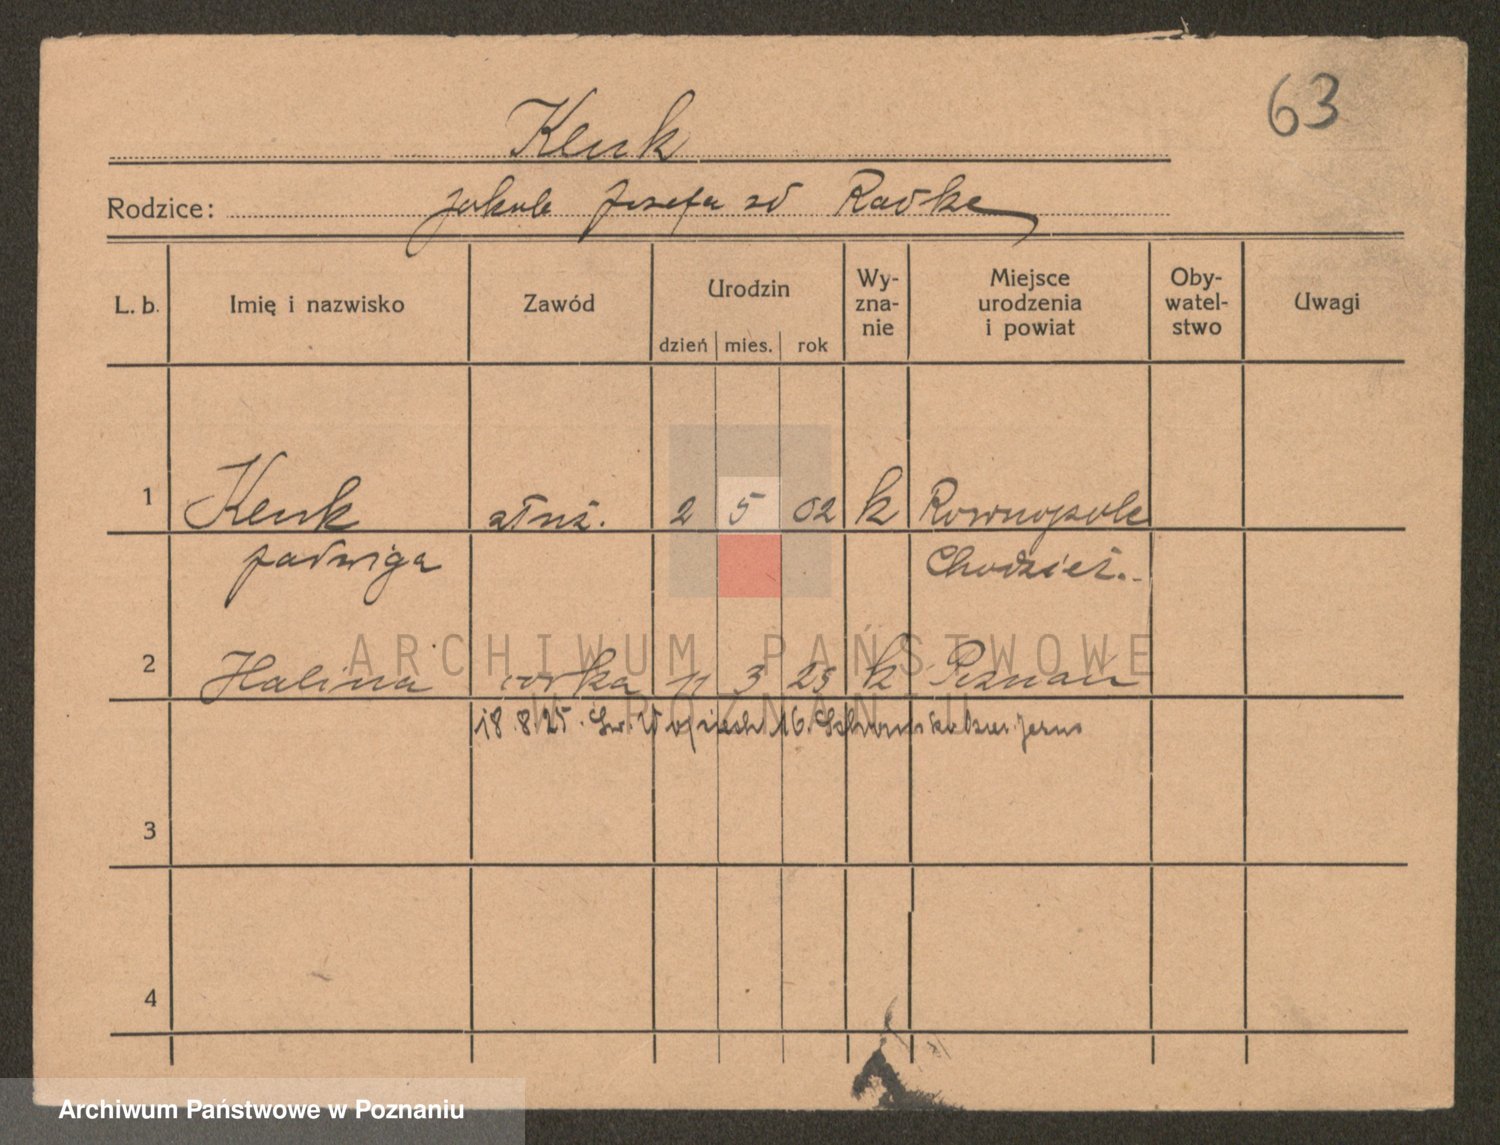 63
Kenk
Rodzice: Jakub Józefa zd Radke
L. b. Imię i nazwisko Zawód Urodzin dzień mies. rok Wy-zna-nie Miejsce urodzenia i powiat Oby-watel-stwo Uwagi
1 Kenk służ. 2 5 02 k Rownopole
Jadwiga Chodzież.
2 Halina corka 11 3 25 k Poznań
18.8.25. Św. Wojciech 16.
3
4
ARCHIWUM PAŃSTWOWE
W POZNANIU
Archiwum Państwowe w Poznaniu